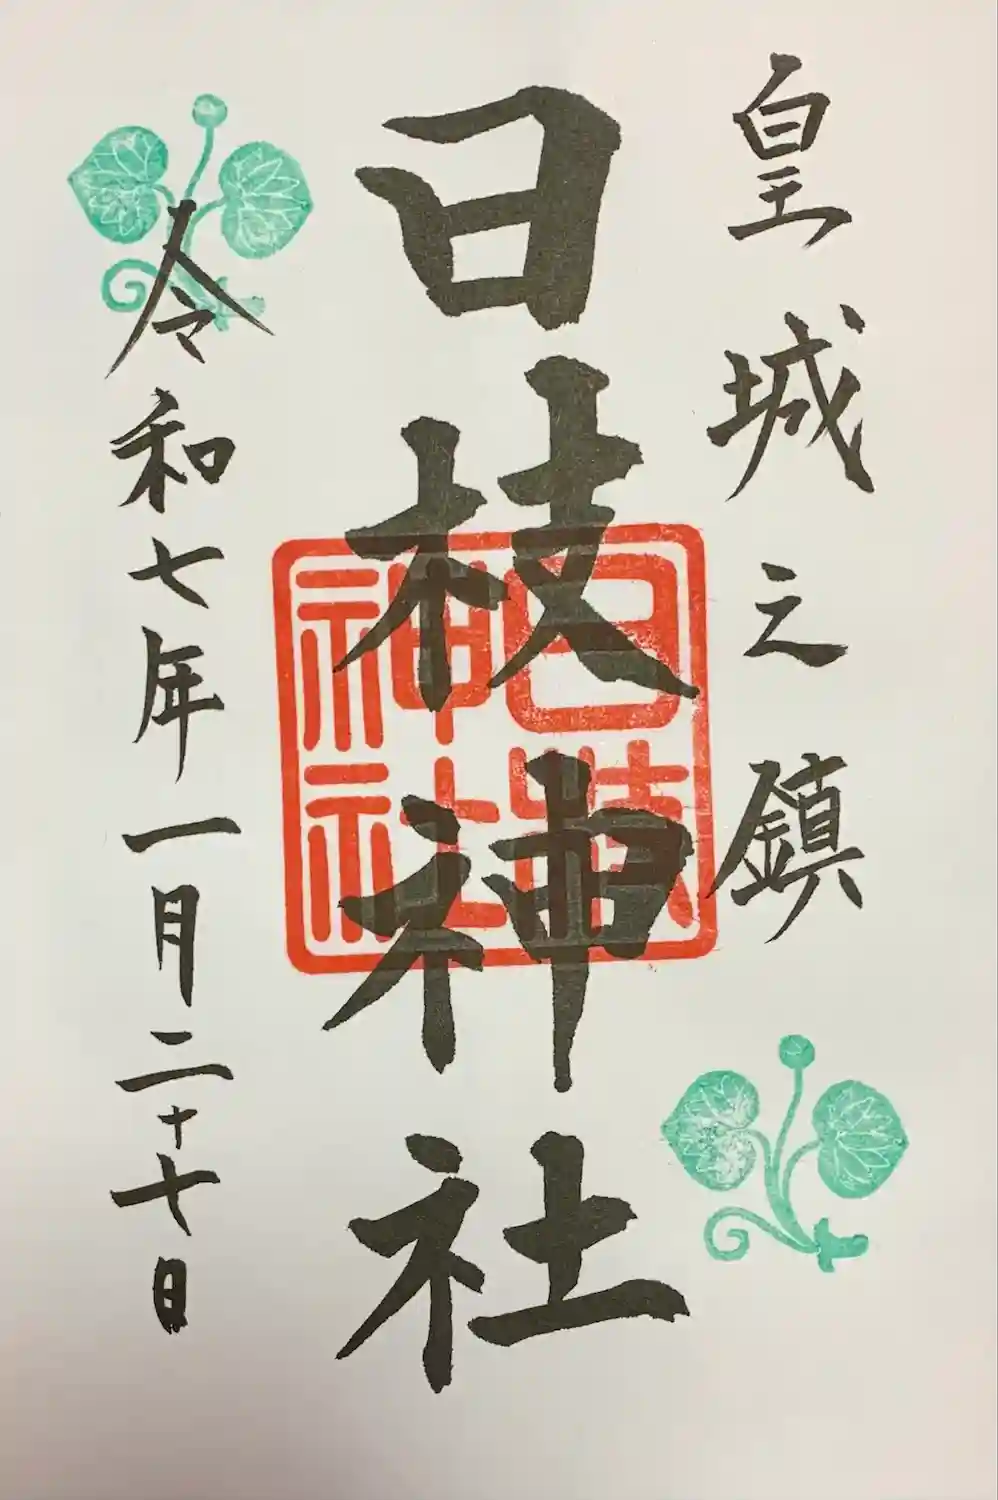 皇城之鎮
日枝神社
日枝神社
令和七年一月二十七日